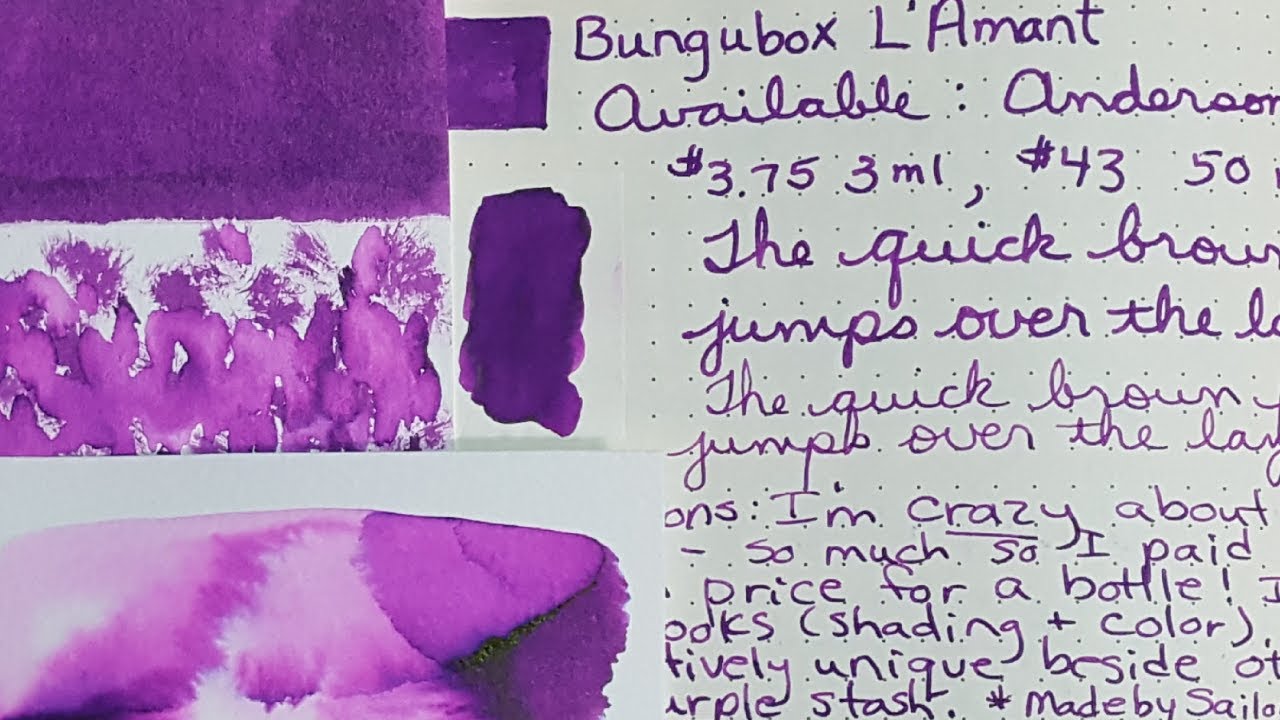 Bungubox L'Amant
Available: Anderson
$3.75 3ml, $43 50
The quick brown
jumps over the
The quick brown
jumps over the
I'm crazy about
- so much so I paid
price for a bottle! I
(shading + color),
unique beside
stash. * Made by